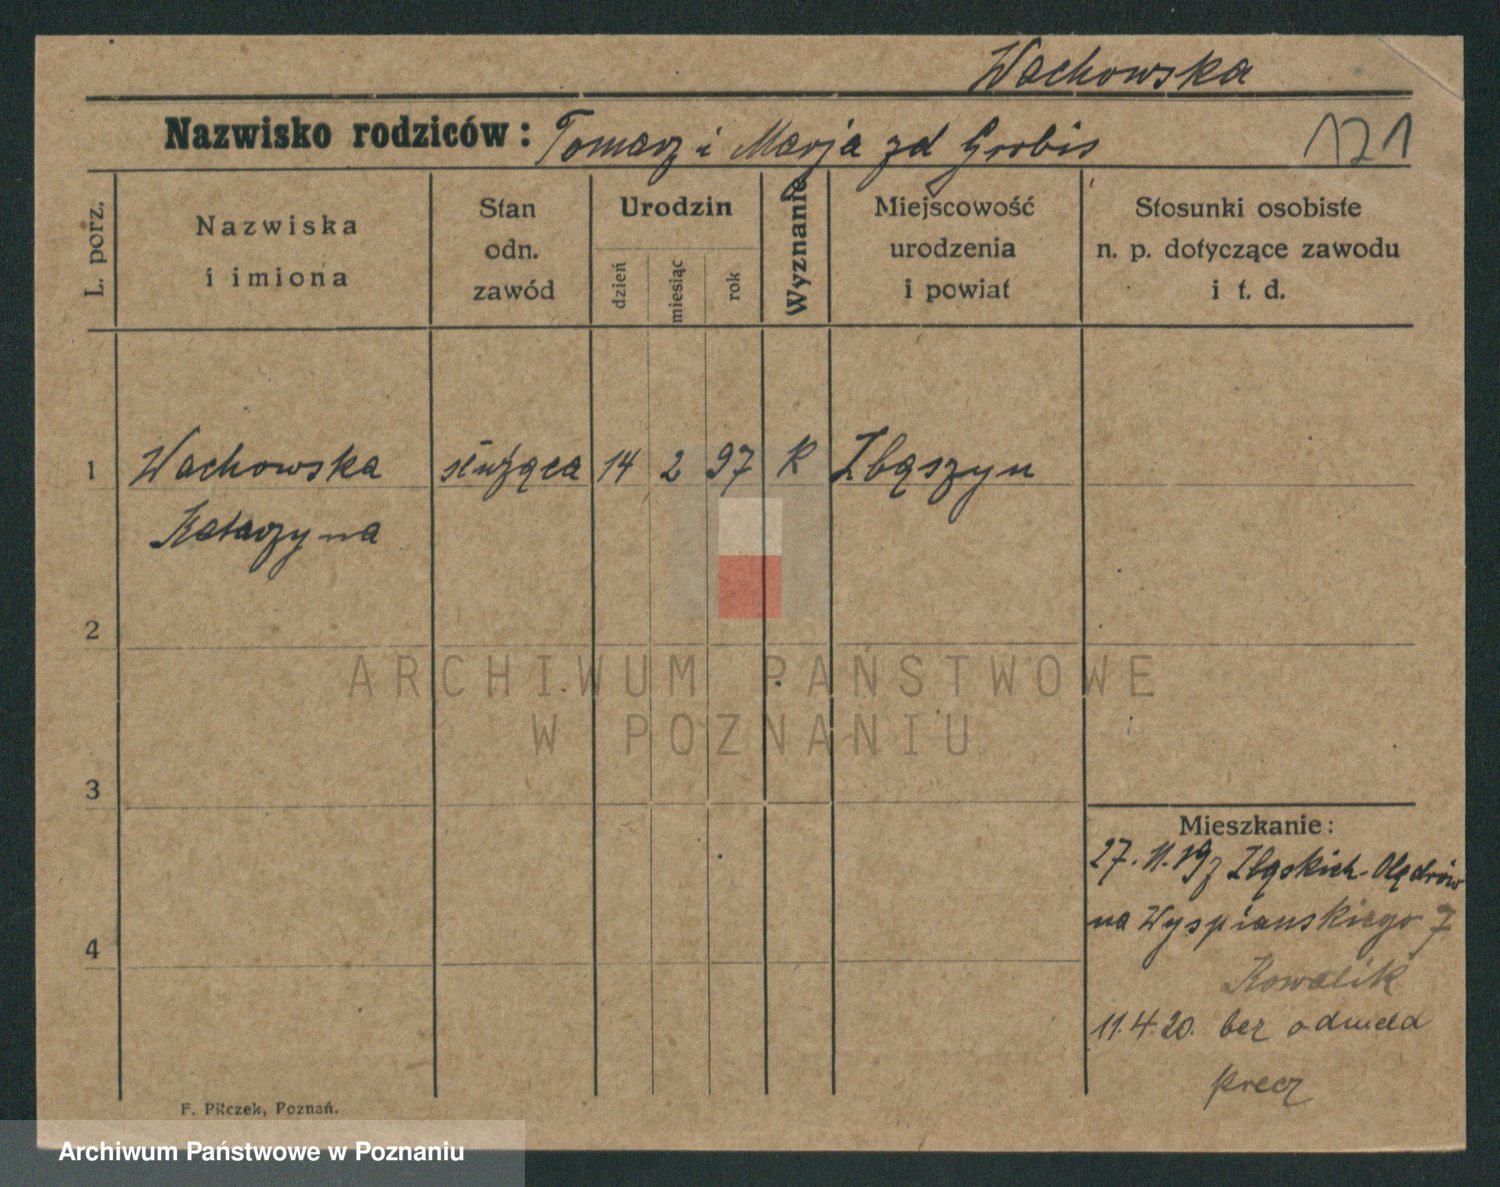 Wachowska
Nazwisko rodziców: Tomasz i Marja zd Grobis
171
L. porz.
Nazwiska
i imiona
Stan
odn.
zawód
Urodzin
dzień
miesiąc
rok
Wyznanie
Miejscowość
urodzenia
i powiat
Stosunki osobiste
n. p. dotyczące zawodu
i t. d.
1 Wachowska służąca 14 2 97 K Zbąszyn
Katarzyna
2
3
4
Mieszkanie:
27.11.19 z Zbąskich-Olędrów
na Wyspiańskiego 7
Kowalik
11.4.20. bez odmeld
precz
F. Pilczek, Poznań.
ARCHIWUM PAŃSTWOWE
W POZNANIU
Archiwum Państwowe w Poznaniu